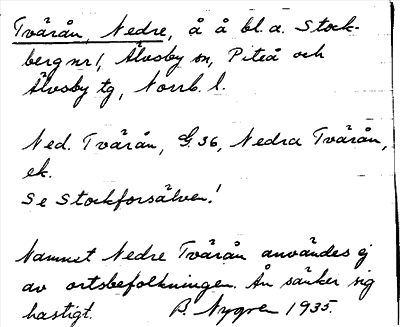 Tvärån, Nedre, å å bl.a. Stock-
berg nr 1, Älvsby sn, Piteå och
Älvsby tg, Norrb. l.
Ned. Tvärån, G. 36, Nedra Tvärån,
ek.
Se Stockforsälven!
Namnet Nedre Tvärån användes ej
av ortsbefolkningen. Ån sänker sig
hastigt. B. Nygren 1935.